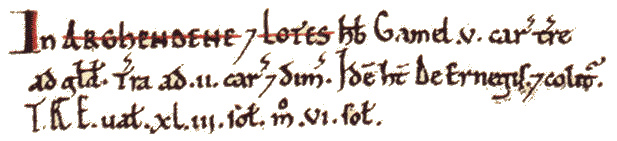 In ARGhENDENE ⁊ LOTES hb̄ Gamel .v. car̄ tr̄e
ad gld̄. Tr̄a ad .ii. car̄ ⁊ dim̄. Idē ht̄ De Ernegis ⁊ colit̄.
T.R.E. ual̄ .xl.iii. sol̄. m̊ .vi. sol̄.